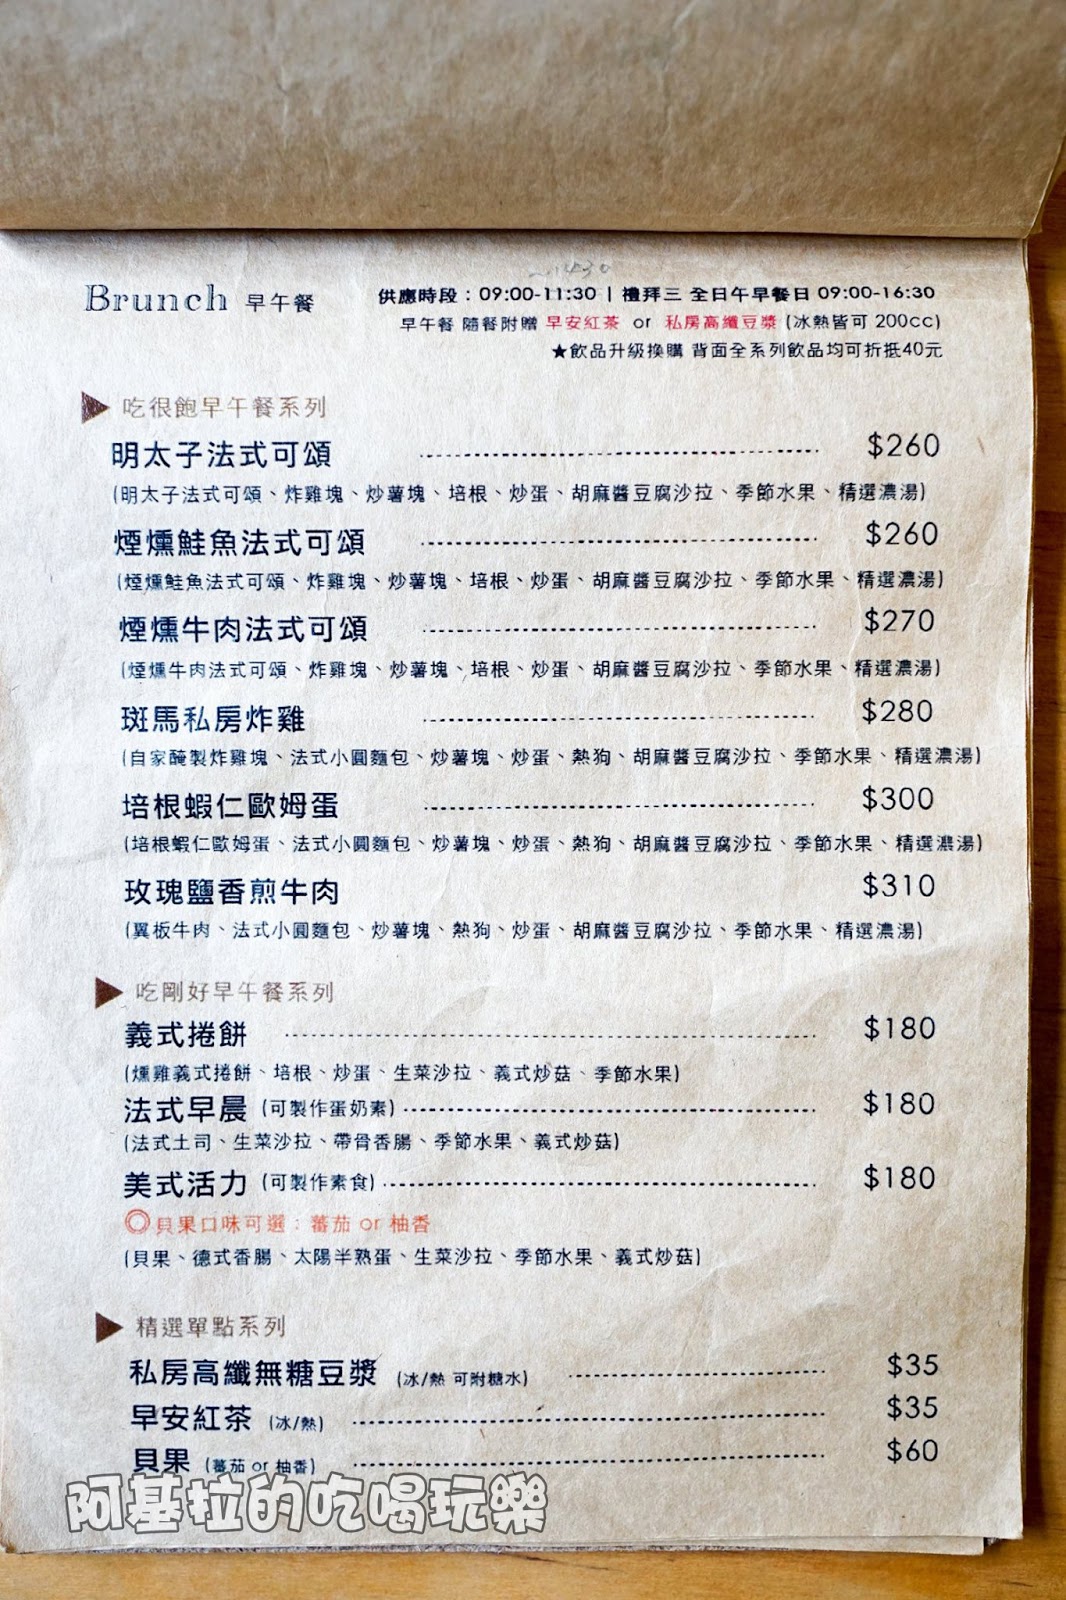 Brunch 早午餐
供應時段：09:00-11:30 | 禮拜三 全日午早餐日 09:00-16:30
早午餐 隨餐附贈 早安紅茶 or 私房高纖豆漿 (冰熱皆可 200cc)
★飲品升級換購 背面全系列飲品均可折抵40元
▶ 吃很飽早午餐系列
明太子法式可頌 $260
(明太子法式可頌、炸雞塊、炒薯塊、培根、炒蛋、胡麻醬豆腐沙拉、季節水果、精選濃湯)
煙燻鮭魚法式可頌 $260
(煙燻鮭魚法式可頌、炸雞塊、炒薯塊、培根、炒蛋、胡麻醬豆腐沙拉、季節水果、精選濃湯)
煙燻牛肉法式可頌 $270
(煙燻牛肉法式可頌、炸雞塊、炒薯塊、培根、炒蛋、胡麻醬豆腐沙拉、季節水果、精選濃湯)
斑馬私房炸雞 $280
(自家醃製炸雞塊、法式小圓麵包、炒薯塊、炒蛋、熱狗、胡麻醬豆腐沙拉、季節水果、精選濃湯)
培根蝦仁歐姆蛋 $300
(培根蝦仁歐姆蛋、法式小圓麵包、炒薯塊、炒蛋、熱狗、胡麻醬豆腐沙拉、季節水果、精選濃湯)
玫瑰鹽香煎牛肉 $310
(翼板牛肉、法式小圓麵包、炒薯塊、熱狗、炒蛋、胡麻醬豆腐沙拉、季節水果、精選濃湯)
▶ 吃剛好早午餐系列
義式捲餅 $180
(燻雞義式捲餅、培根、炒蛋、生菜沙拉、義式炒菇、季節水果)
法式早晨 (可製作蛋奶素) $180
(法式土司、生菜沙拉、帶骨香腸、季節水果、義式炒菇)
美式活力 (可製作素食) $180
◎貝果口味可選：蕃茄 or 柚香
(貝果、德式香腸、太陽半熟蛋、生菜沙拉、季節水果、義式炒菇)
▶ 精選單點系列
私房高纖無糖豆漿 (冰/熱 可附糖水) $35
早安紅茶 (冰/熱) $35
貝果 (蕃茄 or 柚香) $60
阿基拉的吃喝玩樂